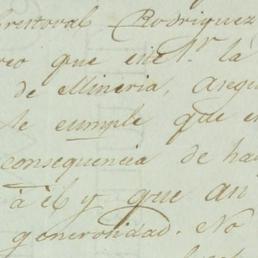 Cristoval Rodriguez
que la
de Mineria, Aseg
le cumple que e
consequencia de ha
à él y que an
generosidad. No